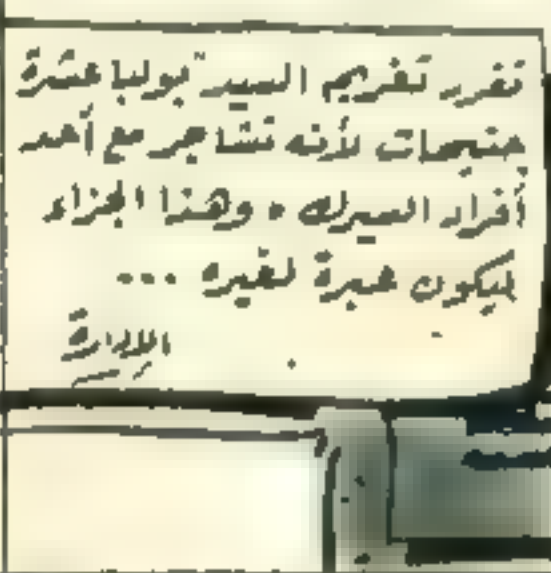 تقرر تغريم السيد "بولبا عشرة
جنيهات لأنه تشاجر مع أحد
أفراد السيرك . وهذا الجزاء
ليكون عبرة لغيره ...
الادارة